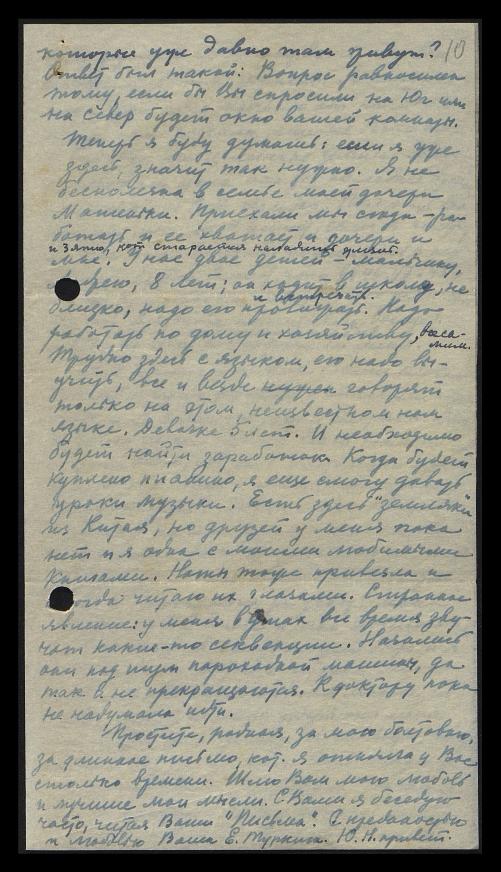 которые уже давно там живут? 10
Ответ был такой: Вопрос равносилен
тому, если бы Вы спросили на Юг или
на север будет окно вашей комнаты.
Теперь я буду думать: если я уже
здесь, значит так нужно. Я не
бесполезна в семье моей дочери
Приехали мы сюда – ра-
ботать и ее хватает и дочери и
и зятю, кот. старается наладить жизнь.
мне. У нас двое детей – мальчику,
8 лет; он ходит в школу, не
и встречать.
близко, надо его провожать. Надо
работать по дому и хозяйству, все са-
мим.
Трудно здесь с языком, его надо вы-
учить, все и везде говорят
только на этом, неизвестном нам
языке. Девочке 5 лет. И необходимо
будет найти заработок. Когда будет
куплено пианино, я еще смогу давать
уроки музыки. Есть здесь "земляки"
из Китая, но друзей у меня пока
нет и я одна с моими любимыми
книгами. Ноты тоже привезла и
иногда читаю их глазами. Странное
явление: у меня в ушах все время зву-
чат какие-то секвенции. Начались
они под шум пароходной машины, да
так и не прекращаются. К доктору пока
не надумала идти.
Простите, родная, за мою болтовню,
за длинное письмо, кот. я отняла у Вас
столько времени. Шлю Вам мою любовь
и лучшие мои мысли. С Вами я беседую
часто, читая Ваши "Письма". С преданностью
и любовью Ваша Е. Туркина. Ю. Н. привет.